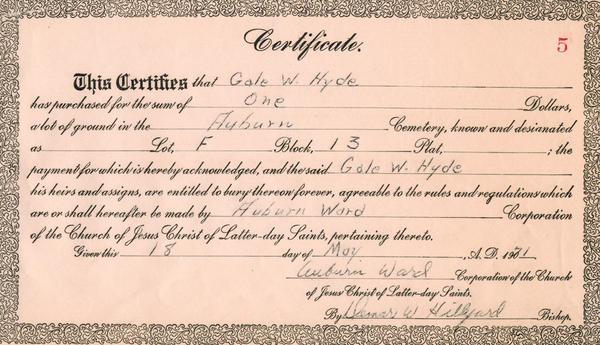 Certificate.
5
This Certifies that Gale W. Hyde
has purchased for the sum of One Dollars,
a lot of ground in the Auburn Cemetery, known and designated
as Lot, F Block, 13 Plat, ; the
payment for which is hereby acknowledged, and the said Gale W. Hyde
his heirs and assigns, are entitled to bury thereon forever, agreeable to the rules and regulations which
are or shall hereafter be made by Auburn Ward Corporation
of the Church of Jesus Christ of Latter-day Saints, pertaining thereto.
Given this 18 day of May , A. D. 1971
Auburn Ward Corporation of the Church
of Jesus Christ of Latter-day Saints.
By W Hillyard Bishop.